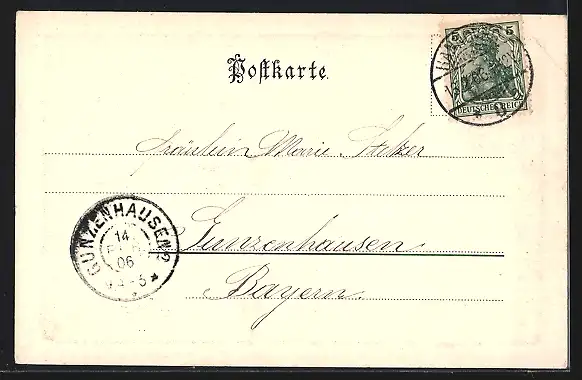 Postkarte.
5 5
DEUTSCHES REICH
Fräulein Marie
Gunzenhausen
Bayern.
GUNZENHAUSEN
14
06